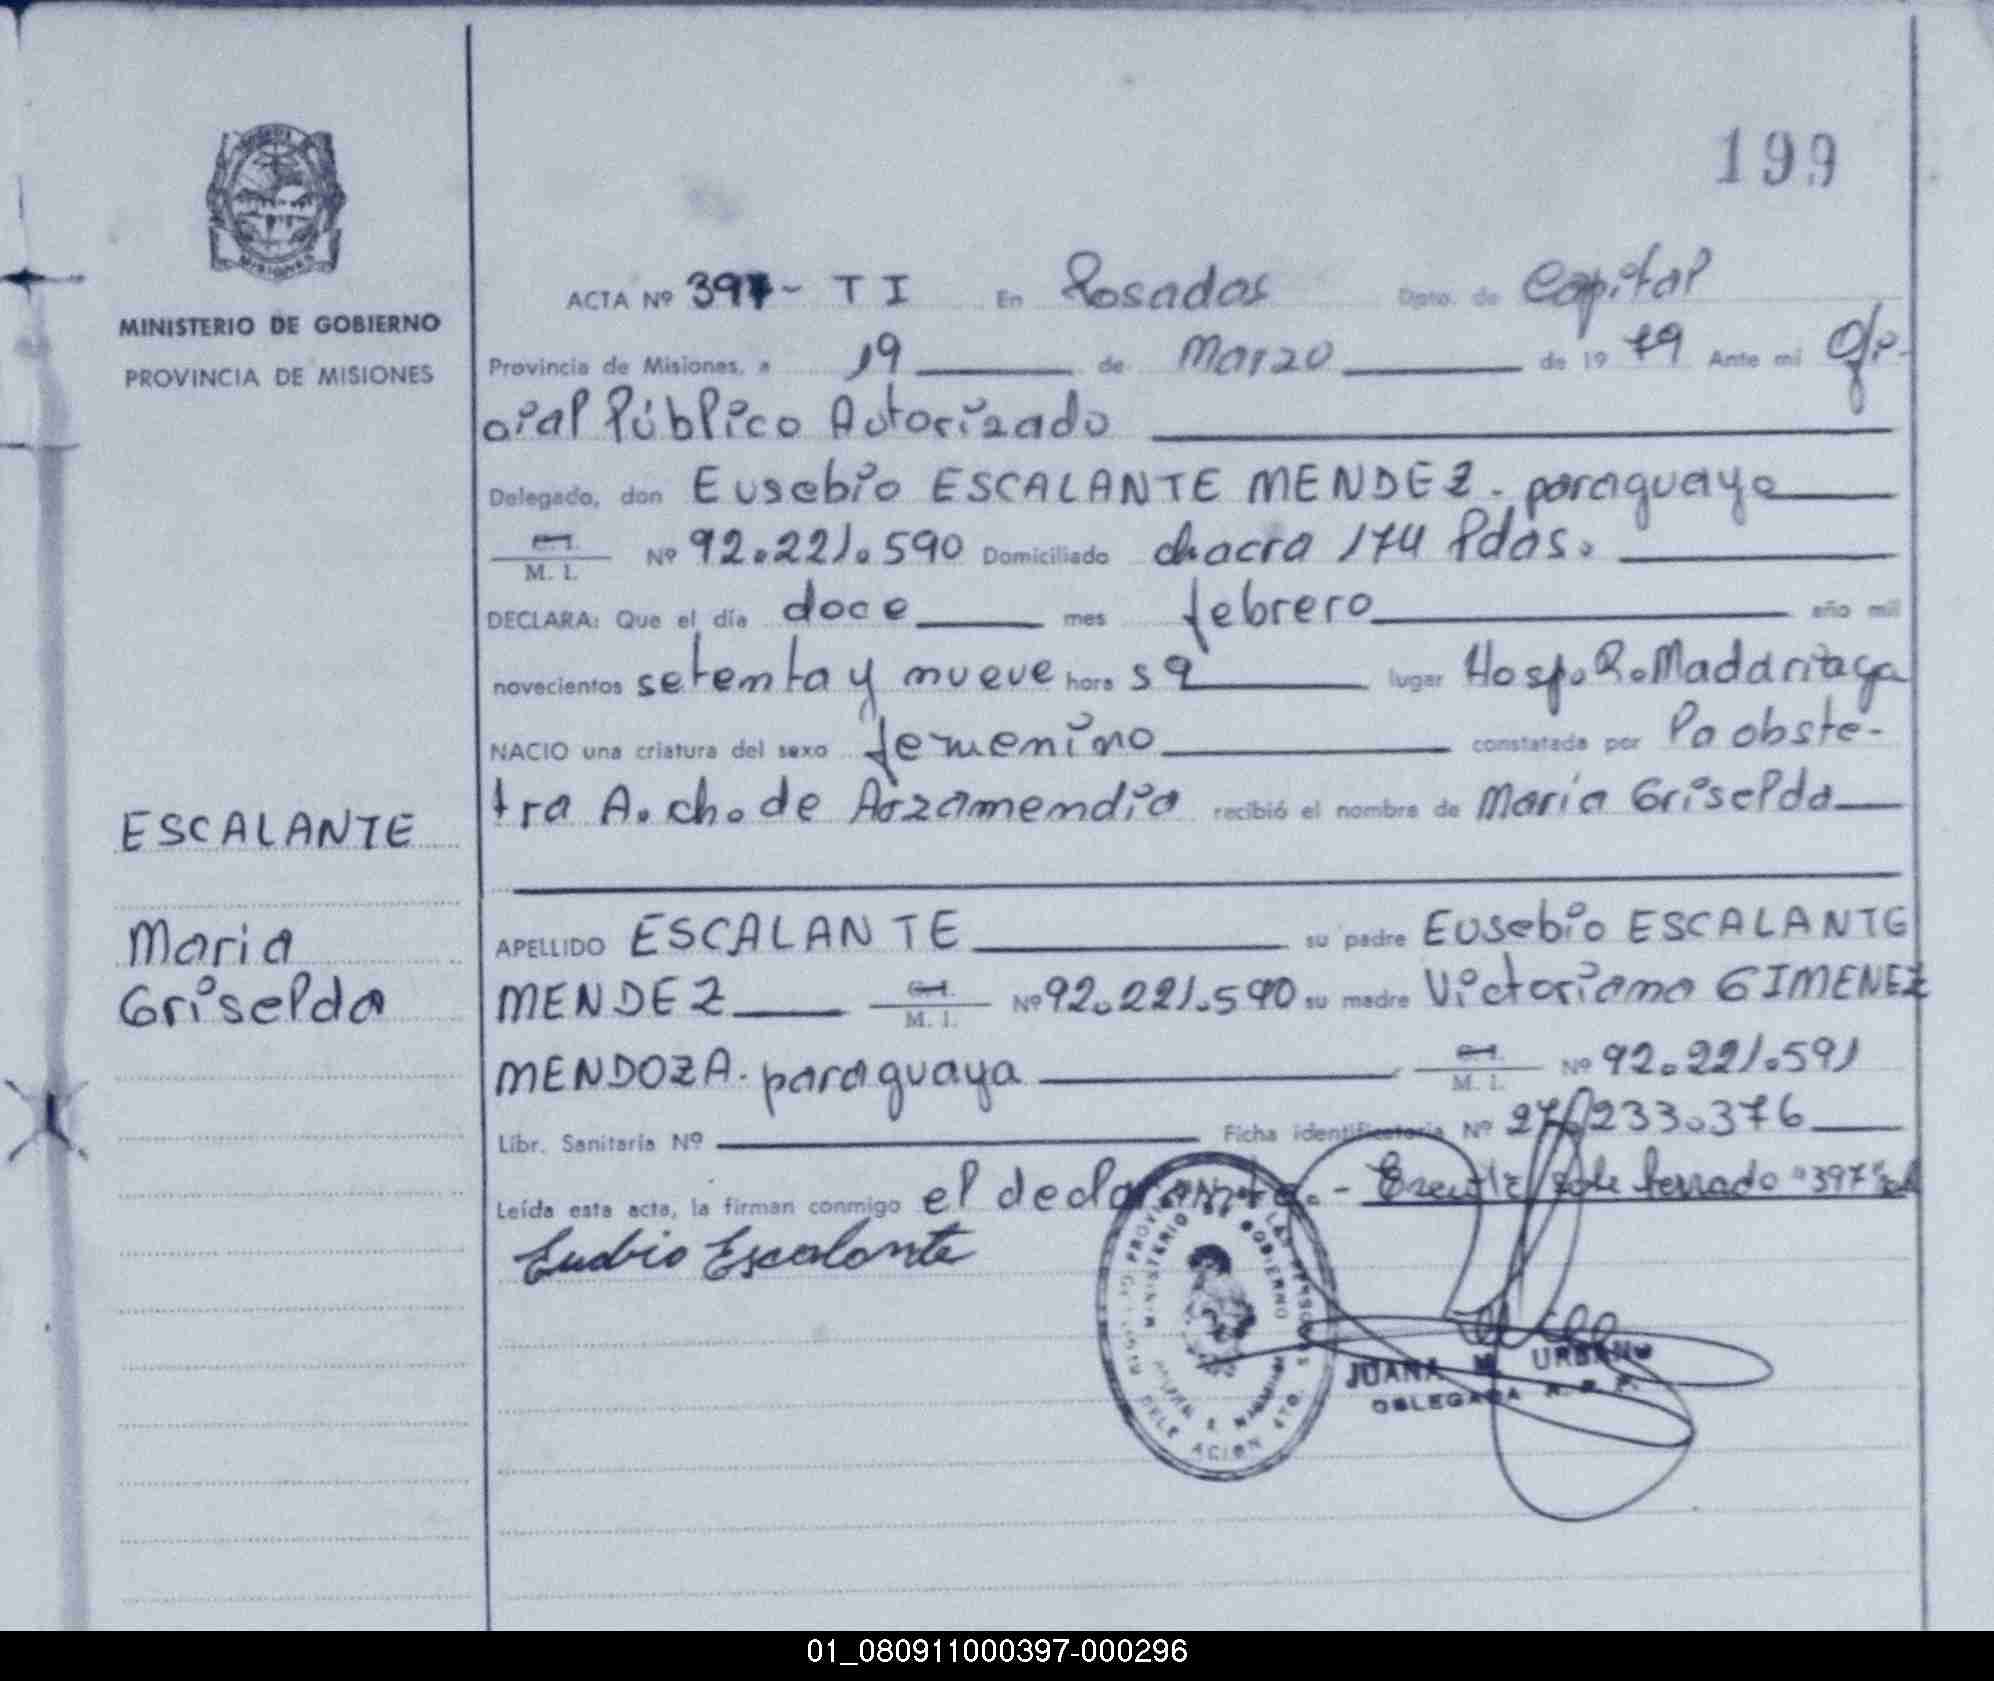 199
MINISTERIO DE GOBIERNO
PROVINCIA DE MISIONES
ACTA Nº 397 - T I En Posadas Dpto. de Capital
Provincia de Misiones, a 19 de Marzo de 19 79 Ante mi Ofi-
cial Público Autorizado
Delegado, don Eusebio ESCALANTE MENDEZ. paraguayo
C.I. M. I. Nº 92.221.590 Domiciliado chacra 174 Pdas.
DECLARA: Que el día doce mes febrero año mil
novecientos setenta y nueve hora s 9 lugar Hosp. R. Madariaga
NACIO una criatura del sexo femenino constatada por Pa obste-
tra A. ch. de Arzamendia recibió el nombre de María Griselda
ESCALANTE
Maria
Griselda
APELLIDO ESCALANTE su padre Eusebio ESCALANTE
MENDEZ C.I. M. I. Nº 92.221.590 su madre Victoriana GIMENEZ
MENDOZA. paraguaya C.I. M. I. Nº 92.221.591
Libr. Sanitaria Nº Ficha identificatoria Nº 27.233.376
Leída esta acta, la firman conmigo el declarante. - "397"
Eusebio Escalante
MINISTERIO DE GOBIERNO
DELEGACION 4TO.
JUANA M. URBAN
DELEGADA R. P.
01_080911000397-000296